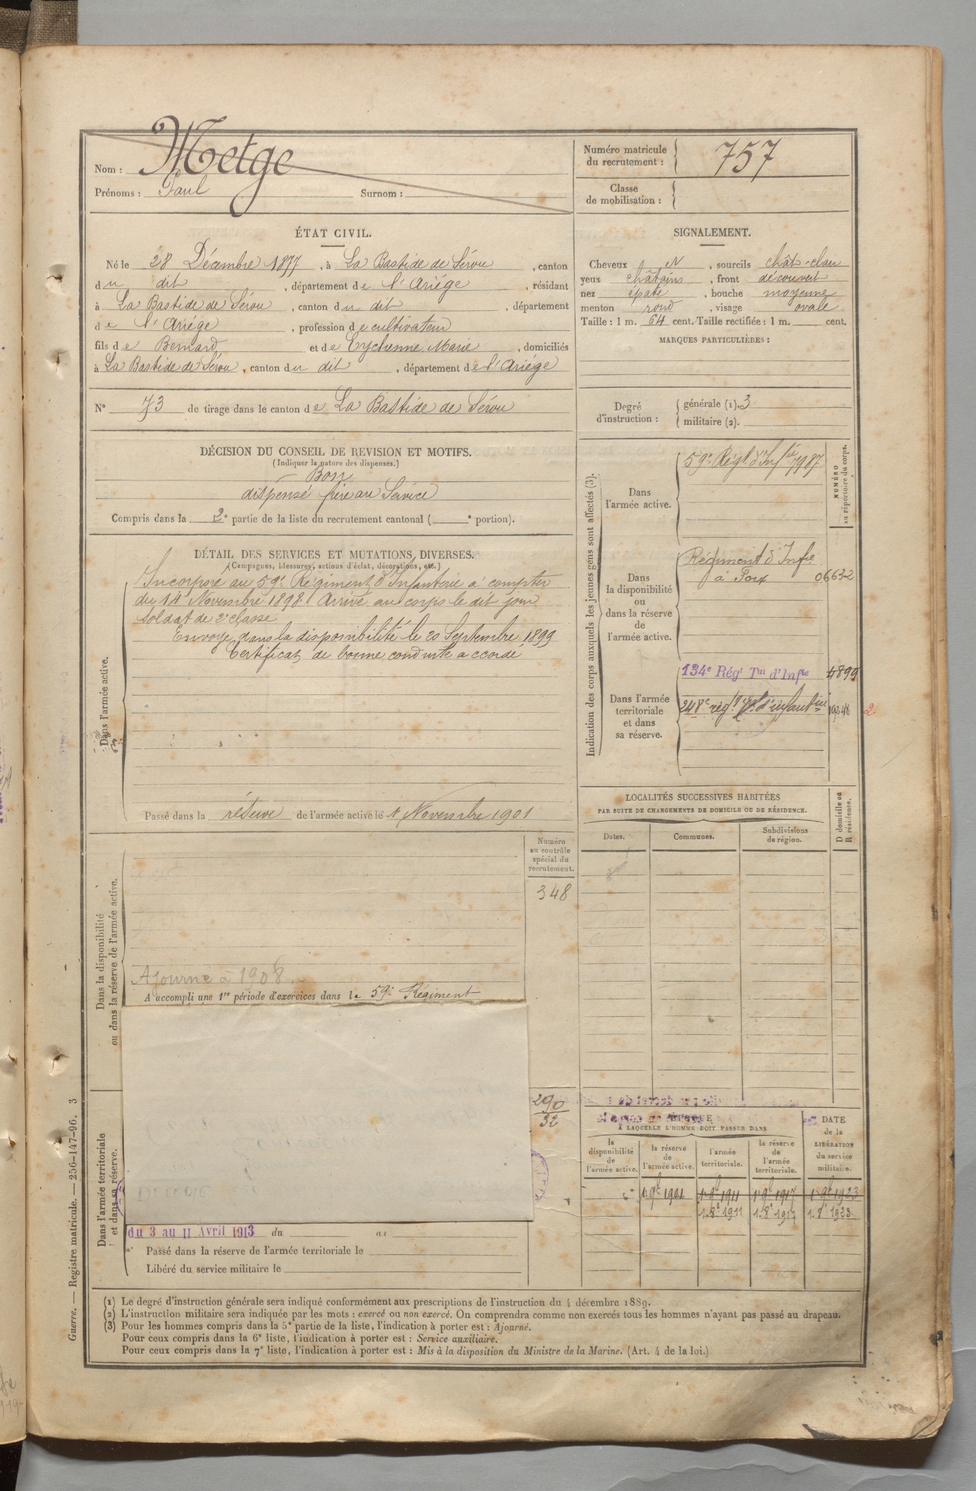 Nom : Metge
Prénoms : Paul Surnom :
Numéro matricule du recrutement : 757
Classe de mobilisation :
ÉTAT CIVIL.
Né le 28 Décembre 1877, à La Bastide de Sérou, canton
du dit, département de l'Ariège, résidant
à La Bastide de Sérou, canton du dit, département
de l'Ariège, profession de cultivateur
fils de Bernard et de Eychenne Marie, domiciliés
à La Bastide de Sérou, canton du dit, département de l'Ariège
N° 73 de tirage dans le canton de La Bastide de Sérou
SIGNALEMENT.
Cheveux N, sourcils chât-clair
yeux châtains, front découvert
nez épaté, bouche moyenne
menton rond, visage ovale
Taille : 1 m. 64 cent. Taille rectifiée : 1 m. cent.
MARQUES PARTICULIÈRES :
Degré d'instruction : générale (1). 3
militaire (2).
DÉCISION DU CONSEIL DE REVISION ET MOTIFS.
(Indiquer la nature des dispenses.)
Bon
dispensé frère au Service
Compris dans la 2e partie de la liste du recrutement cantonal ( e portion).
DÉTAIL DES SERVICES ET MUTATIONS DIVERSES.
(Campagnes, blessures, actions d'éclat, décorations, etc.)
Dans l'armée active.
Incorporé au 59e Régiment d'Infanterie à compter
du 14 Novembre 1898. Arrivé au corps le dit jour
soldat de 2e classe
Envoyé dans la disponibilité le 20 Septembre 1899
Certificat de bonne conduite accordé
Passé dans la réserve de l'armée active le 1 Novembre 1901
Indication des corps auxquels les jeunes gens sont affectés (3).
NUMÉRO au répertoire du corps.
Dans l'armée active.
59e Régt d'Infie 7987
Dans la disponibilité ou dans la réserve de l'armée active.
Régiment d'Infie
à Foix 06632
Dans l'armée territoriale et dans sa réserve.
134e Régt Tal d'Infie 4899
248e rég.t d'infanterie
2
LOCALITÉS SUCCESSIVES HABITÉES
PAR SUITE DE CHANGEMENTS DE DOMICILE OU DE RÉSIDENCE.
Dates. Communes. Subdivisions de région. D domicile ou R résidence.
Numéro au contrôle spécial du recrutement.
348
Dans la disponibilité ou dans la réserve de l'armée active.
Ajourné à 1908
A accompli une 1re période d'exercices dans le 59e Régiment
290
32
Dans l'armée territoriale et dans sa réserve.
du 3 au 11 Avril 1913 du au
Passé dans la réserve de l'armée territoriale le
Libéré du service militaire le
A LAQUELLE L'HOMME DOIT PASSER DANS
la disponibilité de l'armée active. la réserve de l'armée active. l'armée territoriale. la réserve de l'armée territoriale. DATE de la LIBÉRATION du service militaire.
1 9bre 1901 1 9bre 1911 1 9bre 1917 1 9bre 1923
1 8e 1911 1 8e 1917 1 8e 1923
(1) Le degré d'instruction générale sera indiqué conformément aux prescriptions de l'instruction du 4 décembre 1889.
(2) L'instruction militaire sera indiquée par les mots : exercé ou non exercé. On comprendra comme non exercés tous les hommes n'ayant pas passé au drapeau.
(3) Pour les hommes compris dans la 5e partie de la liste, l'indication à porter est : Ajourné.
Pour ceux compris dans la 6e liste, l'indication à porter est : Service auxiliaire.
Pour ceux compris dans la 7e liste, l'indication à porter est : Mis à la disposition du Ministre de la Marine. (Art. 4 de la loi.)
Guerre. — Registre matricule. — 256-147-96. 3